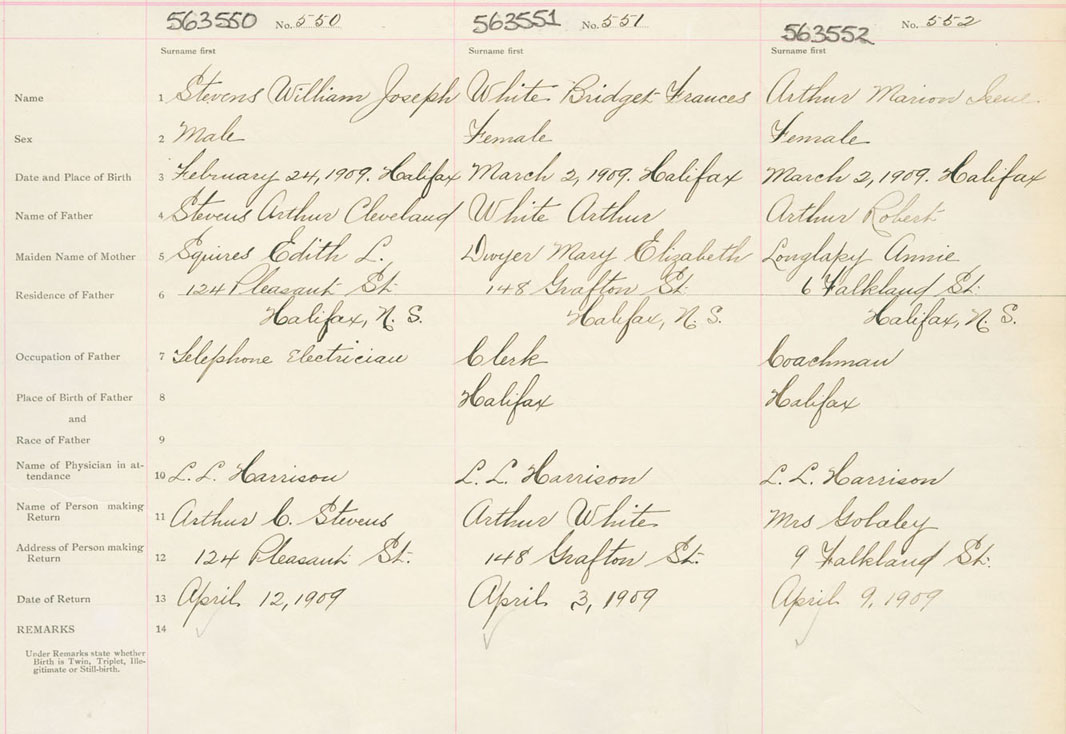 563550 No. 550 563551 No. 551 563552 No. 552
Surname first Surname first Surname first
Name 1 Stevens William Joseph White Bridget Frances Arthur Marion Irene
Sex 2 Male Female Female
Date and Place of Birth 3 February 24, 1909. Halifax March 2, 1909. Halifax March 2, 1909. Halifax
Name of Father 4 Stevens Arthur Cleveland White Arthur Arthur Robert
Maiden Name of Mother 5 Squires Edith L. Dwyer Mary Elizabeth Annie
Residence of Father 6 124 Pleasant St. 148 Grafton St. 6 Falkland St.
Halifax, N. S. Halifax, N. S. Halifax, N. S.
Occupation of Father 7 Telephone Electrician Clerk Coachman
Place of Birth of Father 8 Halifax Halifax
and
Race of Father 9
Name of Physician in at-
tendance 10 L. L. Harrison L. L. Harrison L. L. Harrison
Name of Person making
Return 11 Arthur C. Stevens Arthur White Mrs
Address of Person making
Return 12 124 Pleasant St. 148 Grafton St. 9 Falkland St.
Date of Return 13 April 12, 1909 April 3, 1909 April 9, 1909
REMARKS 14
Under Remarks state whether
Birth is Twin, Triplet, Ille-
gitimate or Still-birth.